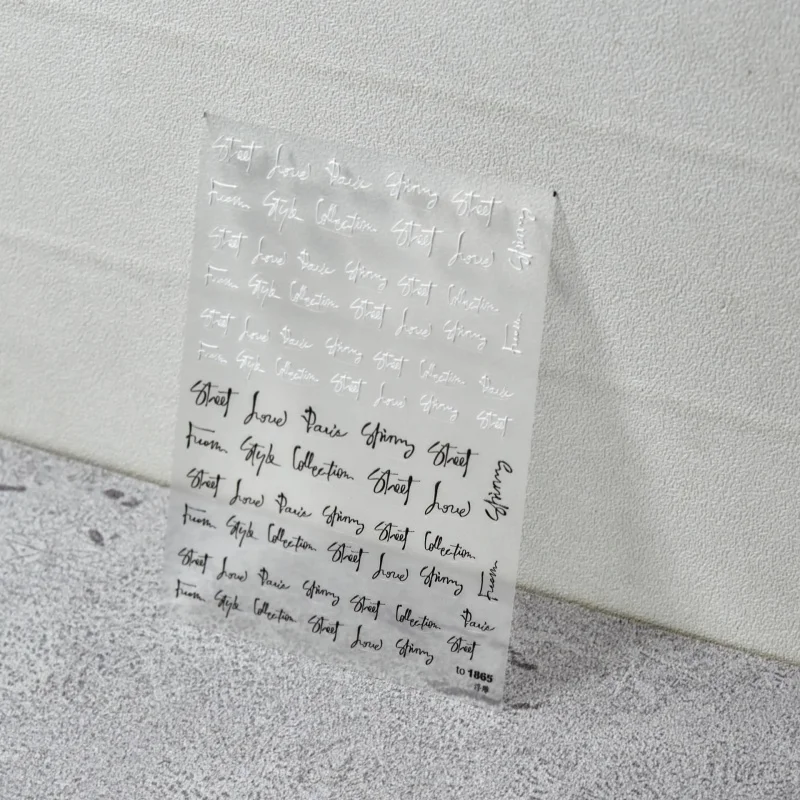 Street Love Paris Spinny Street
From Style Collection Street Love Spinny
Street Love Paris Spinny Street Collection
From Style Collection Street Love Spinny From
Street Love Paris Spinny Street Collection Paris
From Style Collection Street Love Spinny Street
Street Love Paris Spinny Street
From Style Collection Street Love Spinny
Street Love Paris Spinny Street Collection
From Style Collection Street Love Spinny From
Street Love Paris Spinny Street Collection Paris
From Style Collection Street Love Spinny Street
to 1865